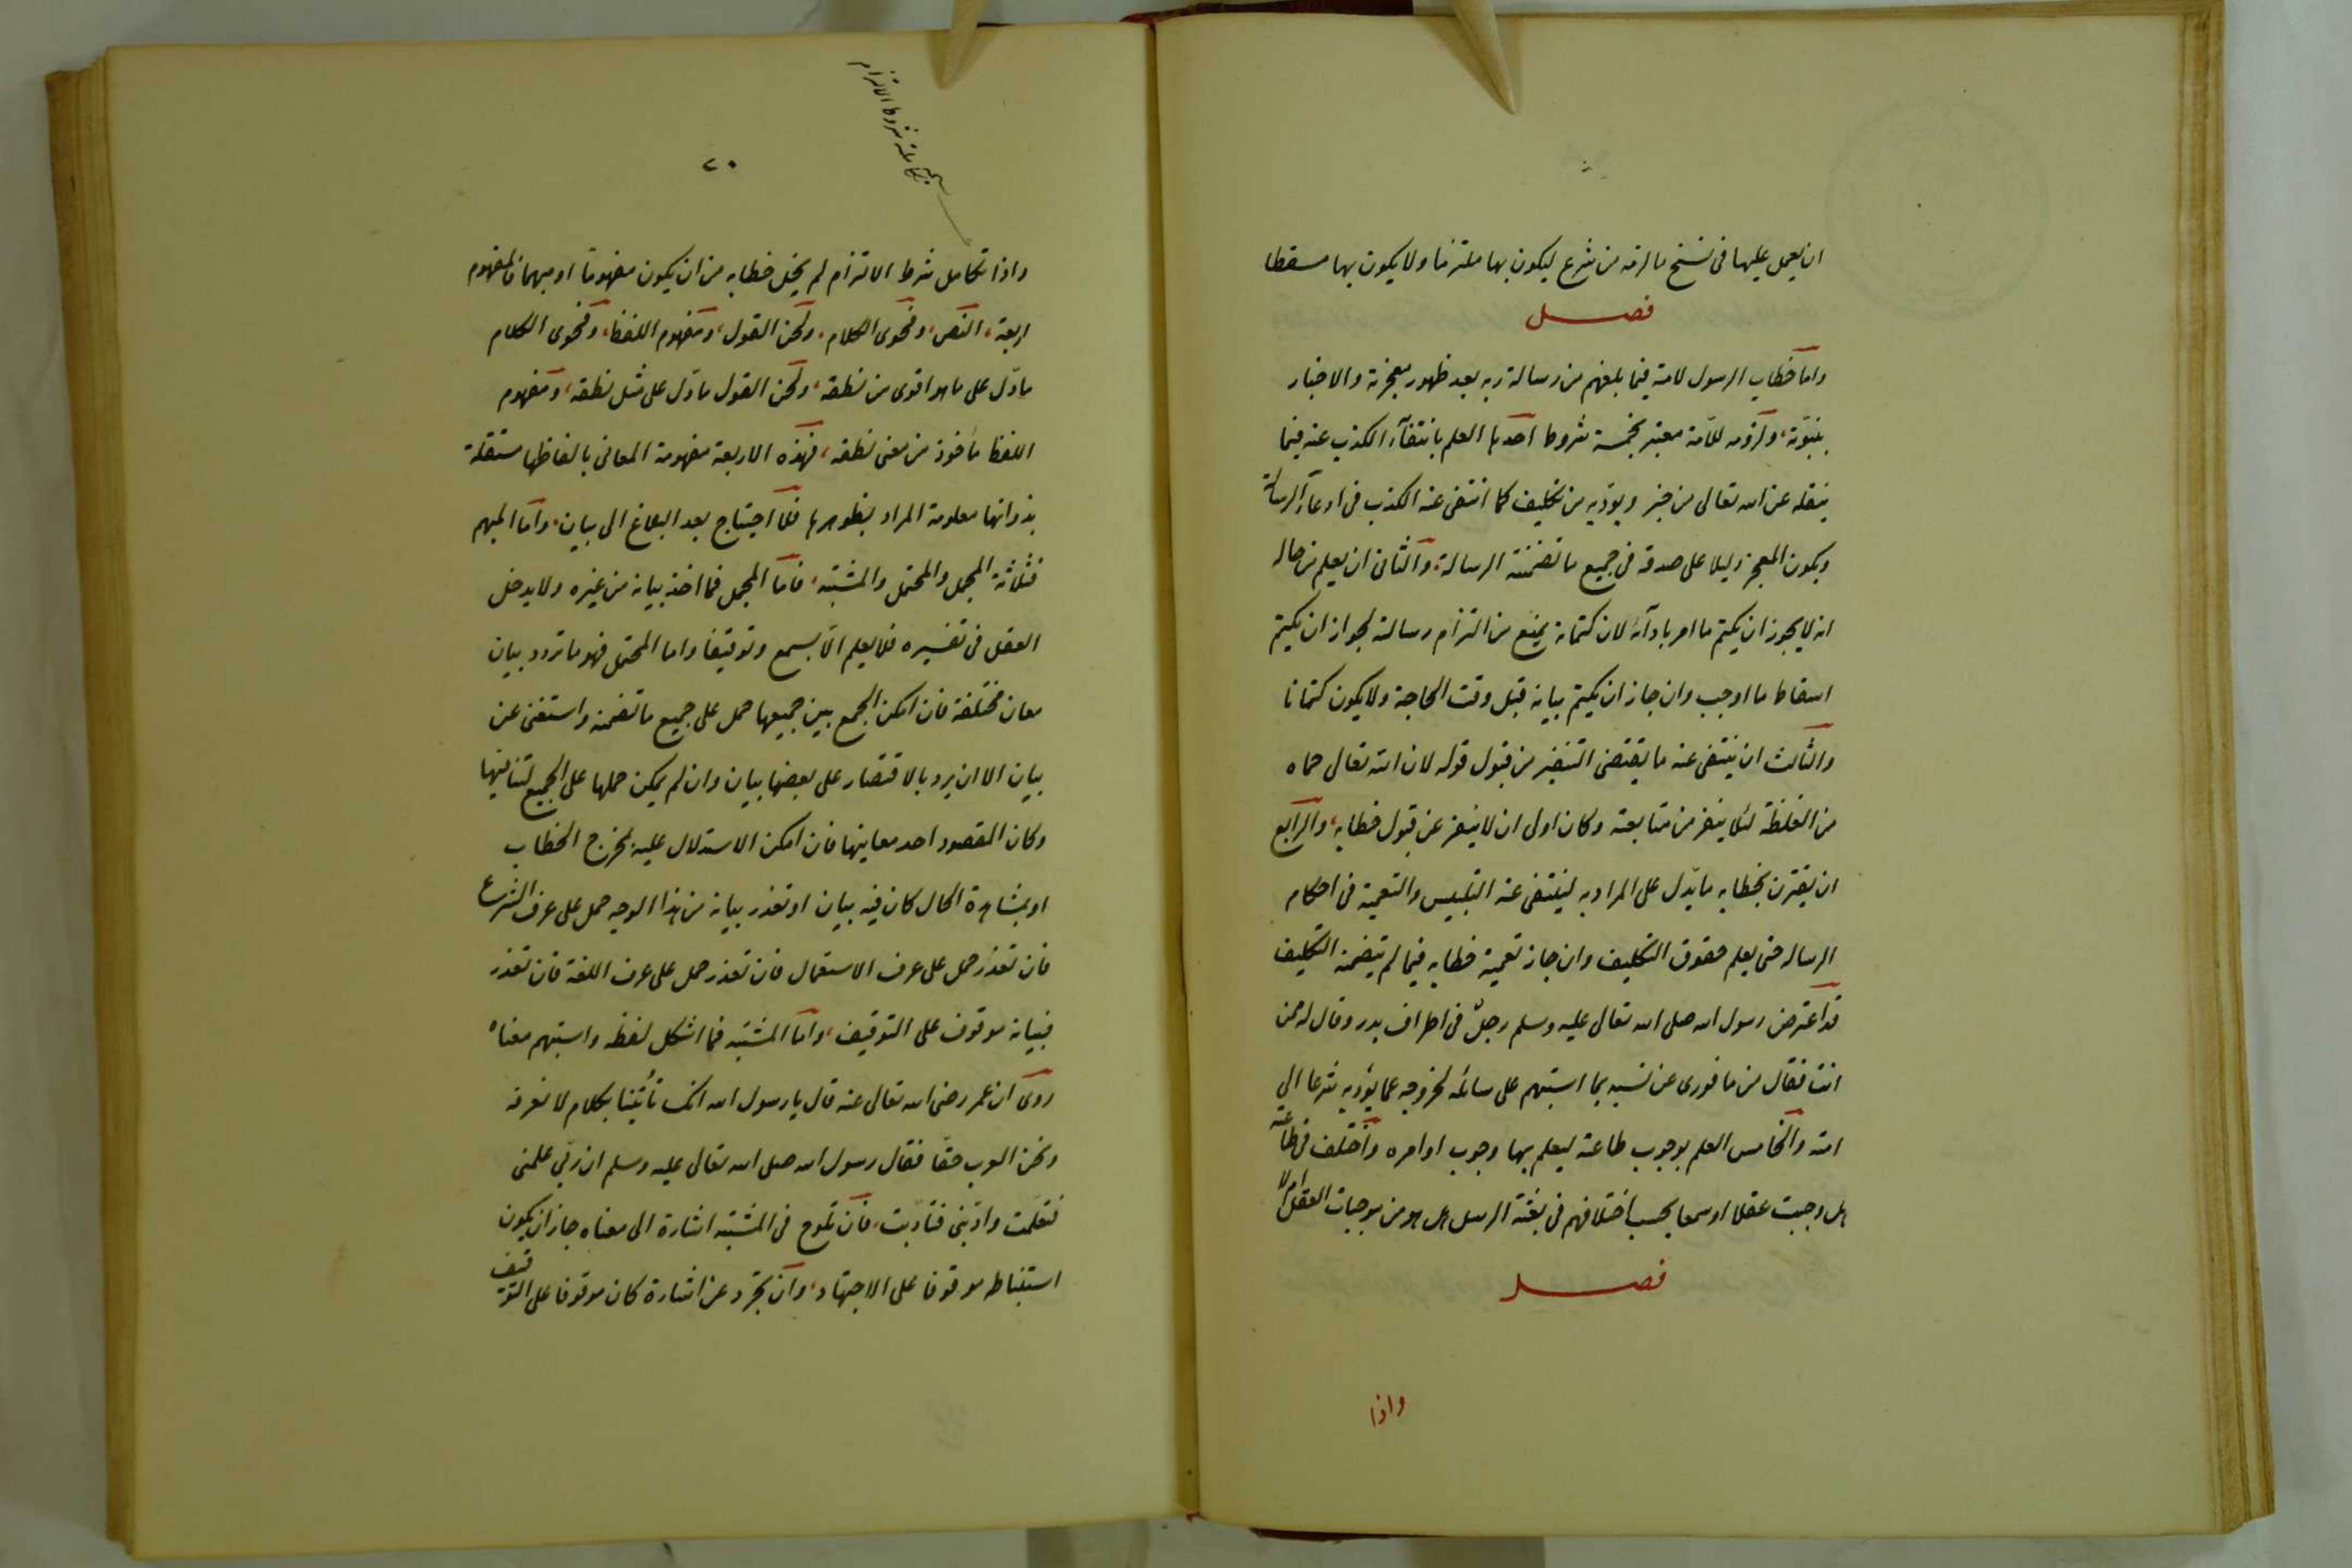 ان يعمل عليها فى نسخ ما لزمه من شرع ليكون بها ملتزما ولا يكون بها مسقطا
فصل
واما خطاب الرسول لامته فيما بلغهم من رسالة ربه بعد ظهور معجزته والاخبار
بنبوّته، ولزومه للامّة معتبر بخمسة شروط احدها العلم بانتفآء الكذب عنه فيما
ينقله عن الله تعالى من خبر ويؤديه من تكليف كما انتفى عنه الكذب فى ادعآء الرسالة
ويكون المعجز دليلا على صدقه فى جميع ما تضمنته الرسالة، والثانى ان يعلم من حاله
انه لا يجوز ان يكتم ما امر بادآئه لان كتمانه يمنع من التزام رسالته لجواز ان يكتم
اسقاط ما اوجب وان جاز ان يكتم بيانه قبل وقت الحاجة ولا يكون كتمانا
والثالث ان ينتفى عنه ما يقتضى التنفير من قبول قوله لان الله تعالى حماه
من الغلظة لئلا ينفر من متابعته وكان اولى ان لا ينفر عن قبول خطابه، والرابع
ان يقترن بخطابه ما يدّل على المراد به لينتفى عنه التلبيس والتعمية فى احكام
الرساله حتى يعلم حقوق التكليف وان جاز تعمية خطابه فيما لم يتضمنه التكليف
قد اعترض رسول الله صلى الله تعالى عليه وسلم رجلٌ فى اطراف بدر وقال له ممن
انت فقال من ما فورى عن نسبه بما استبهم على سائله لخروجه عما يؤديه شرعا الى
امته والخامس العلم بوجوب طاعته ليعلم بها وجوب اوامره واختلف فى طاعته
هل وجبت عقلا او سمعا بحسب اختلافهم فى بعثة الرسل هل هو من موجبات العقل ام لا
فصل
واذا
سجية تكامله شروط الالتزام
٢٠
واذا تكامل شرط الالتزام لم يخل خطابه من ان يكون مفهوما او مبهما فالمفهوم
اربعة، النص، وفحوى الكلام، ولحن القول، ومفهوم اللفظ، وفحوى الكلام
مادّل على ما هو اقوى من نطقه، ولحن القول مادّل على مثل نطقه، ومفهوم
اللفظ مأخوذ من معنى نطقه، فهذه الاربعة مفهومة المعانى بالفاظها مستقلة
بذواتها معلومة المراد بظواهرها فلا احتياج بعد البلاغ الى بيان، واما المبهم
فثلاثة المجمل والمحتمل والمشتبه، فاما المجمل فما اخذ بيانه من غيره ولا يدخل
العقل فى تفسيره فلا يعلم الاّ بسمع وتوقيفا واما المحتمل فهو ما تردد بيان
معان مختلفة فان امكن الجمع بين جميعها حمل على جميع ما تضمنه واستغنى عن
بيان الا ان يرد بالاقتصار على بعضها بيان وان لم يمكن حملها على الجميع لتنافيها
وكان المقصود احد معانيها فان امكن الاستدلال عليه بمخرج الخطاب
او بمشاهدة الحال كان فيه بيان او تعذر بيانه من هذا الوجه حمل على عرف الشرع
فان تعذر حمل على عرف الاستعمال فان تعذر حمل على عرف اللغة فان تعذر
فبيانه موقوف على التوقيف، واما المشتبه فما اشكل لفظه واستبهم معناه
روى ان عمر رضى الله تعالى عنه قال يا رسول الله انك تأتينا بكلام لا نعرفه
ونحن العرب حقّا فقال رسول الله صلى الله تعالى عليه وسلم ان ربّى علمنى
فتعلمت وادّبنى فتأدّبت، فان تلوح فى المشتبه اشارة الى معناه جاز ان يكون
استنباطه موقوفا على الاجتهاد، وان تجرّد عن اشارة كان موقوفا على التوقيف